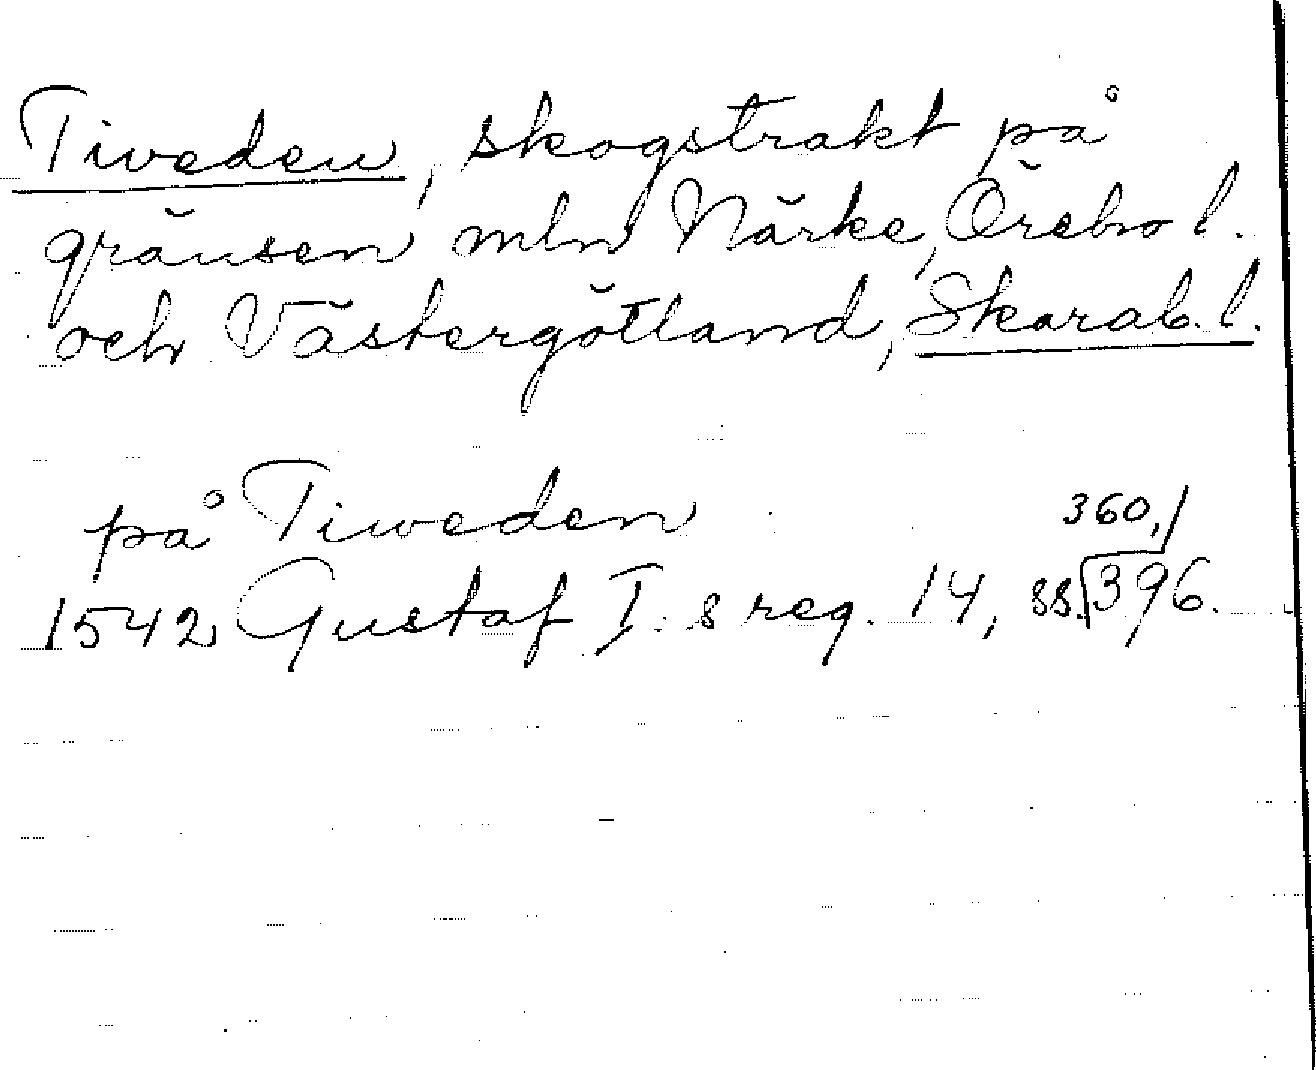 Tiveden, skogstrakt på
gränsen mln Närke, Örebro l.
och Västergötland, Skarab. l.
på Tiweden
360,
1542 Gustaf I:s reg. 14, ss. 396.